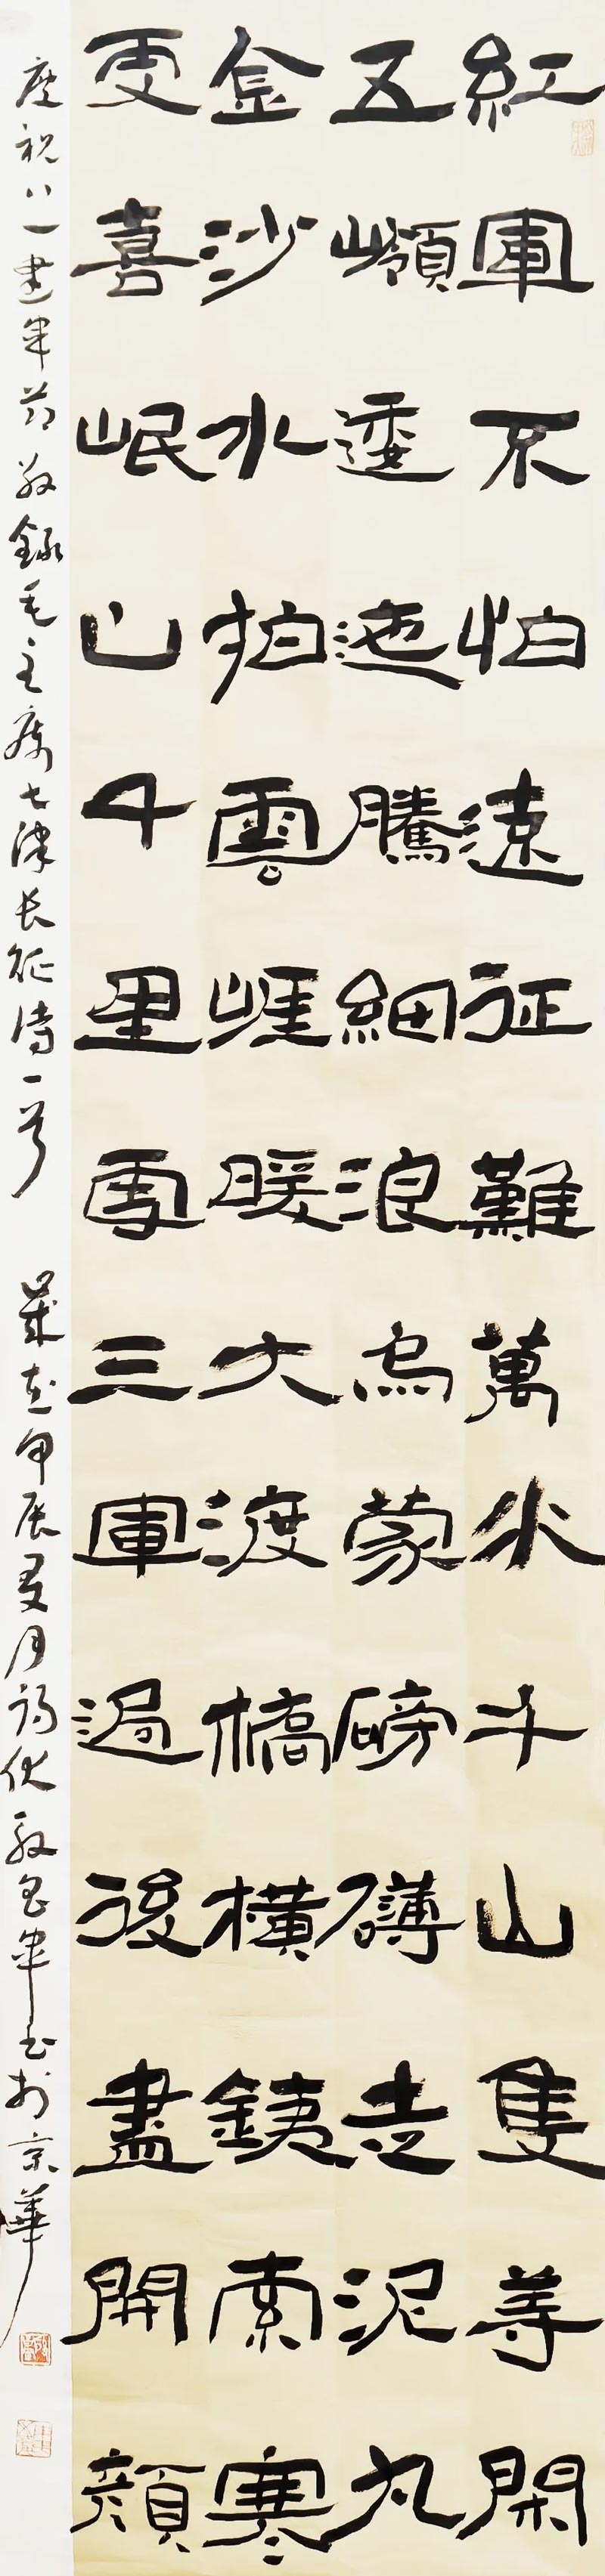 紅軍不怕遠征難萬水千山隻等閑
五嶺逶迤騰細浪烏蒙磅礴走泥丸
金沙水拍雲崖暖大渡橋橫銕索寒
更喜岷山千里雪三軍過後盡開顏
庆祝八一建军节敬録毛主席七律长征诗一首 歲在甲辰夏月初伏军书於京華